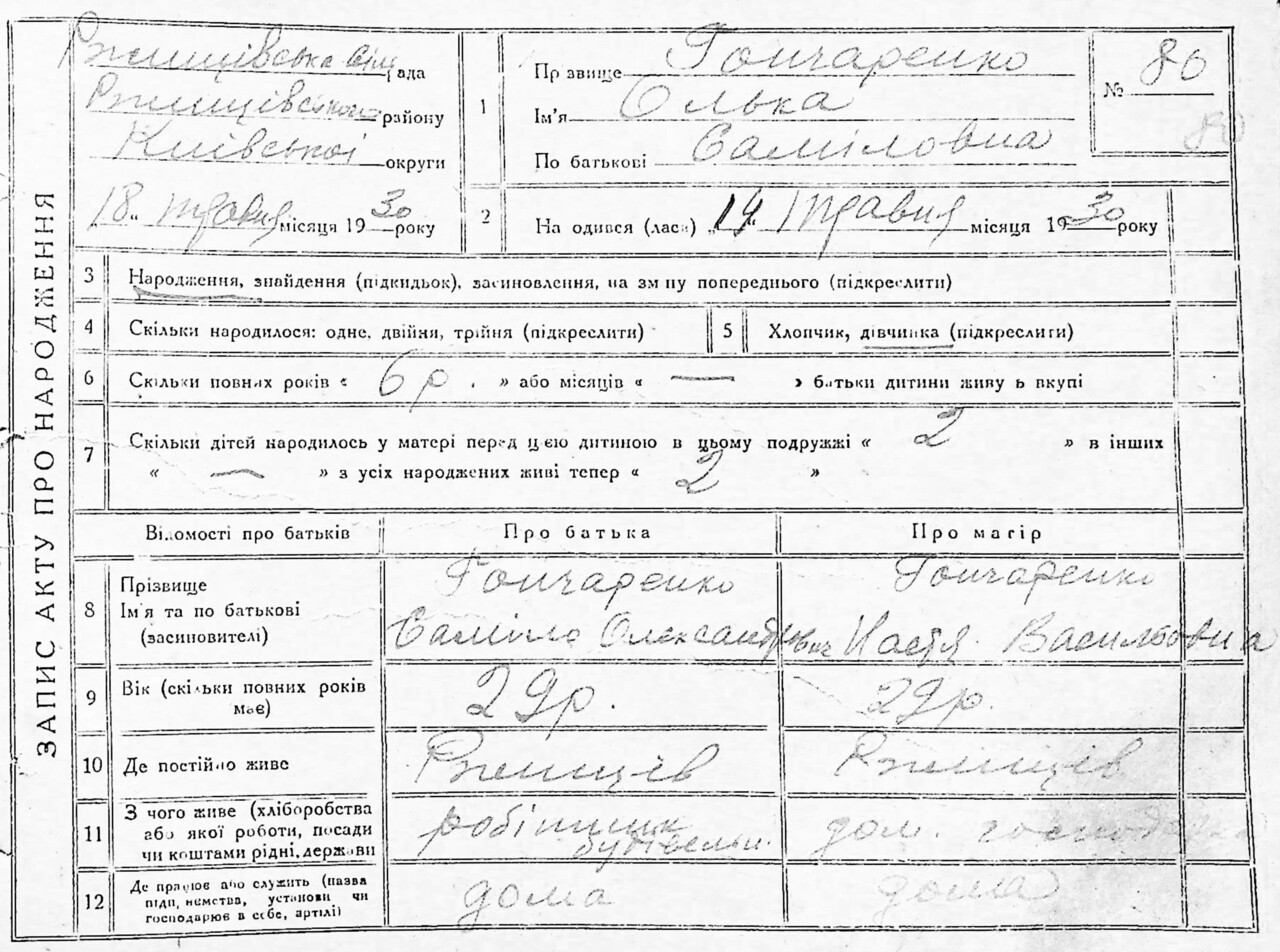 ЗАПИС АКТУ ПРО НАРОДЖЕННЯ
Ржищівська сіль рада
Ржищівського району
Київської округи
"18" травня місяця 1930 року
1
Прізвище Гончаренко
Ім'я Олька
По батькові Самійловна
№ 80
80
2
На одився (лась) "14" травня місяця 1930 року
3 Народження, знайдення (підкидьок), засиновлення, на зміну попереднього (підкреслити)
4 Скільки народилося: одне, двійня, трійня (підкреслити)
5 Хлопчик, дівчинка (підкреслити)
6 Скільки повних років « 6 р. » або місяців « — » батьки дитини живуть вкупі
7 Скільки дітей народилось у матері перед цією дитиною в цьому подружжі « 2 » в інших
« — » з усіх народжених живі тепер « 2 »
Відомості про батьків Про батька Про матір
8 Прізвище
Ім'я та по батькові
(засиновителі)
Гончаренко
Саміло Олександрович
Гончаренко
Настя Васильовна
9 Вік (скільки повних років
має)
29 р.
29 р.
10 Де постійно живе Ржищів Ржищів
11 З чого живе (хліборобства
або якої роботи, посади
чи коштами рідні, держави
робітник
будівельн.
дом. господарка
12 Де працює або служить (назва
підприємства, установи чи
господарює в себе, артілі)
дома